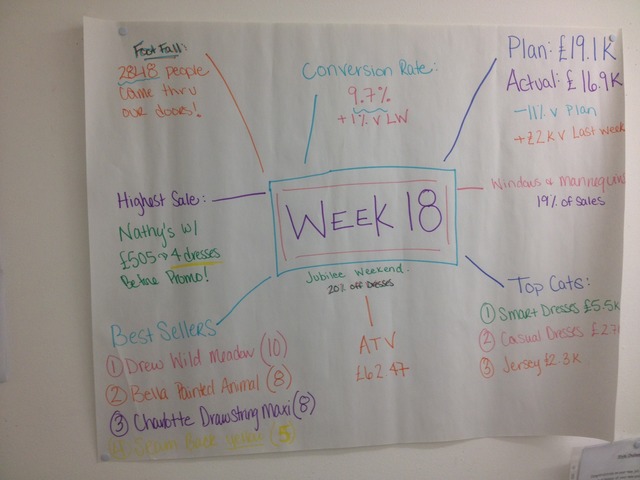 Foot Fall:
2848 people
came thru
our doors!
Conversion Rate:
9.7%
+1% v LW
Plan: £19.1K
Actual: £16.9K
-11% v Plan
+£2K v Last week
Highest Sale:
Nathy's w/
£505 → 4 dresses
Before Promo!
WEEK 18
Windows & Mannequins
19% of sales
Jubilee Weekend:
20% off Dresses
ATV
£62.47
Top Cats:
① Smart Dresses £5.5K
② Casual Dresses £2.7
③ Jersey £2.3K
Best Sellers
① Drew Wild Meadow (10)
② Bella Painted Animal (8)
③ Charlotte Drawstring Maxi (8)
Back (5)